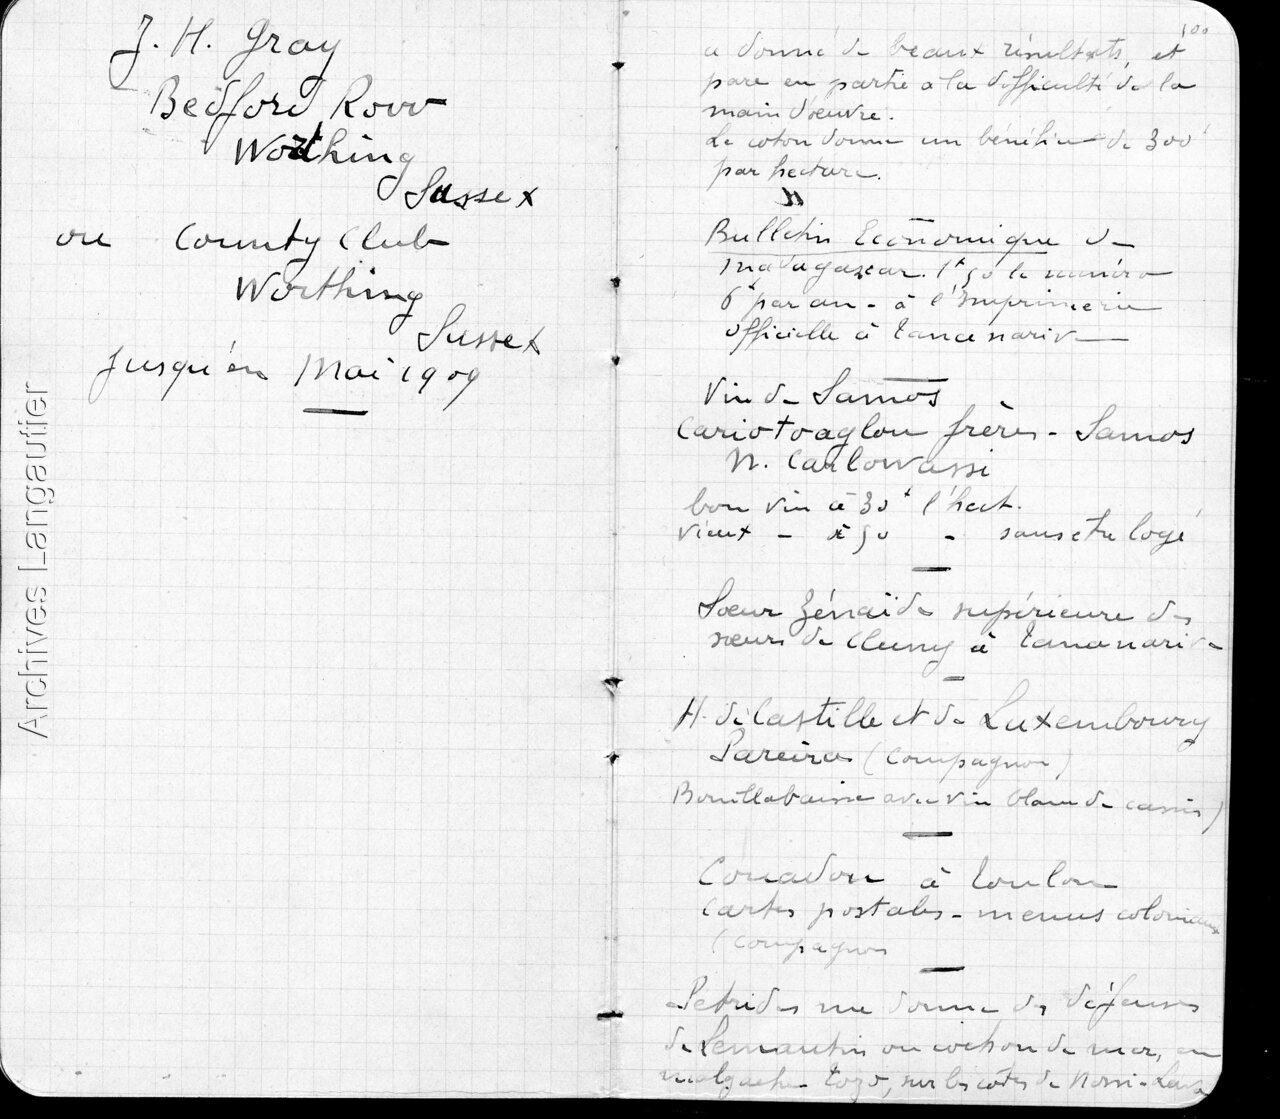 J. H. Gray
Bedford Row
Worthing
Sussex
ou County Club
Worthing
Sussex
jusqu'en Mai 1909
Archives Langautier
100
a donné de beaux résultats, et
pare en partie a la difficulté de la
main d'oeuvre.
Le coton donne un bénéfice de 300f
par hectare.
Bulletin Economique de
Madagascar. 1f50 le numéro
6f par an - à l'Imprimerie
officielle à Tananarive
Vin de Samos
Cariotoaglou frères - Samos
N. Carlowassi
bon vin à 30f l'hect.
vieux - à 50 - sans etre logé
Soeur Zénaïde supérieure des
soeurs de Cluny à Tananarive
H. de Castille et de Luxembourg
Pareira (Compagnon)
Bouillabaisse avec vin blanc de cassis)
Couadou à Toulon
cartes postales - menus coloniaux
(Compagnon
Petrides me donne des défenses
de Lemantin ou cochon de mer, en
malgache sur les côtes de Nossi-